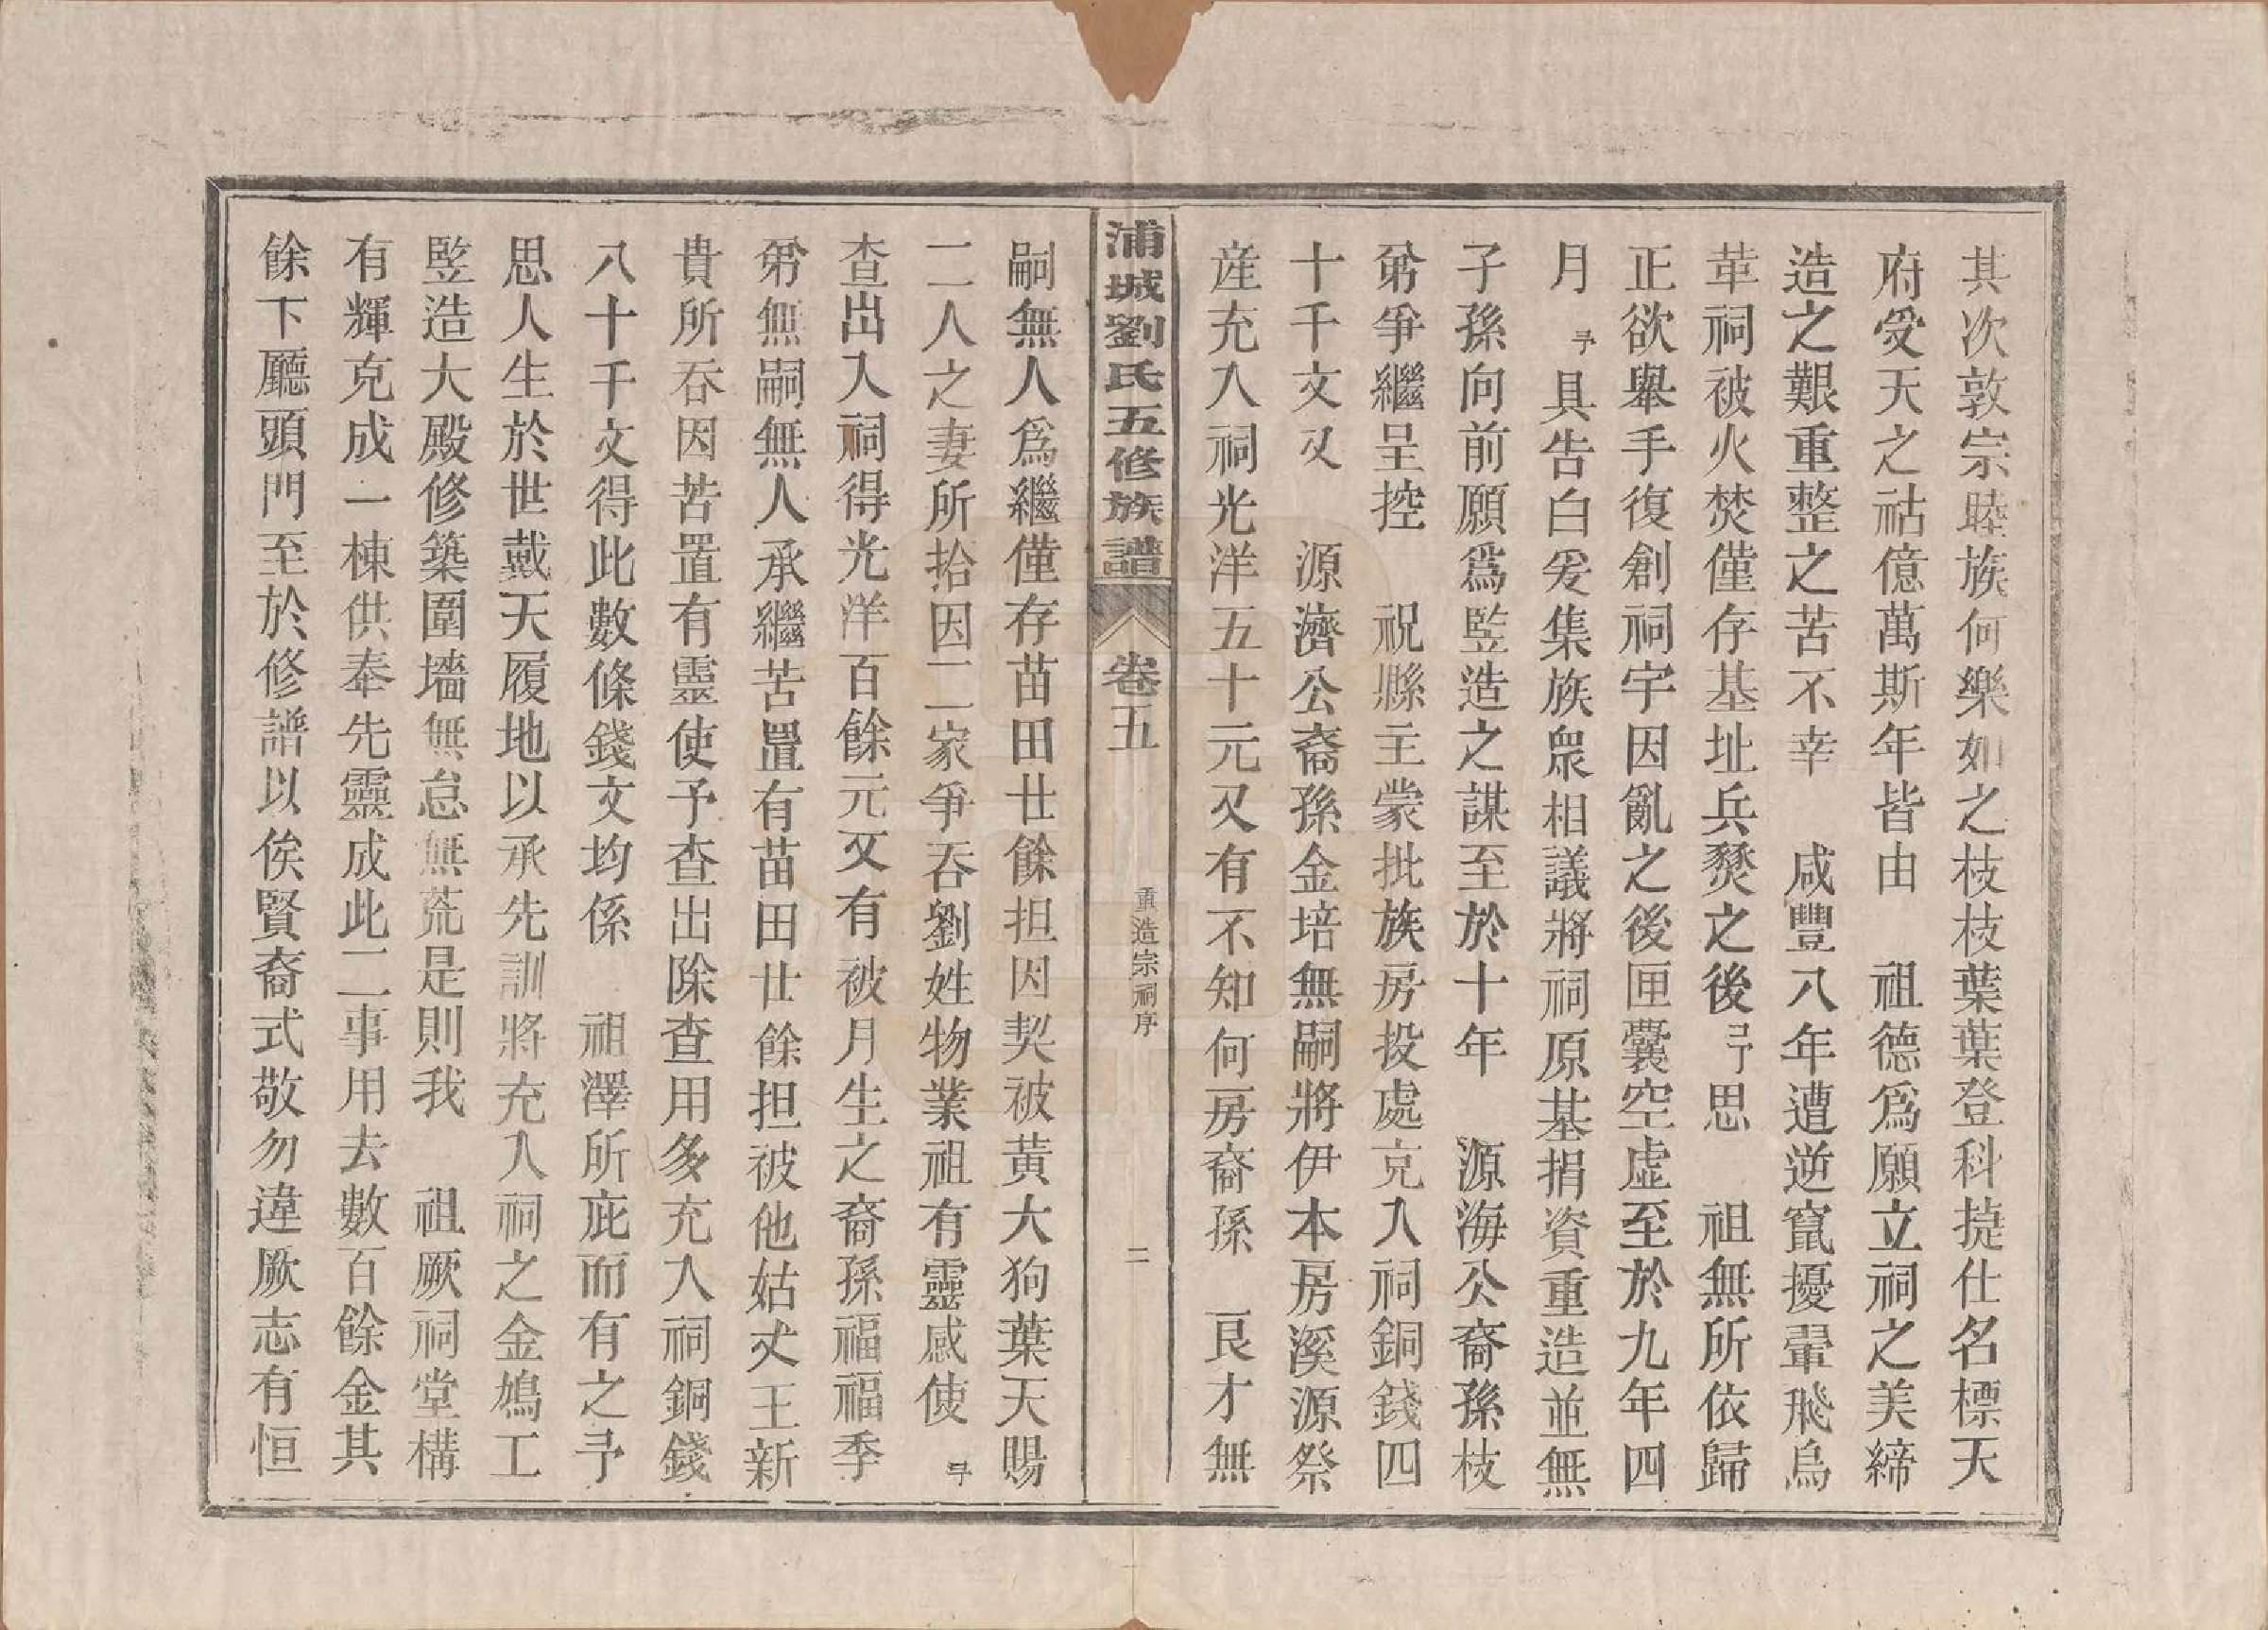 其次敦宗睦族何樂如之枝枝葉葉登科㨗仕名標天
府受天之祜億萬斯年皆由　祖德爲願立祠之美締
造之艱重整之苦不幸　咸豐八年遭逆竄擾翬飛鳥
革祠被火焚僅存基址兵燹之後予思　祖無所依歸
正欲舉手復創祠宇因亂之後匣囊空虛至於九年四
月予具告白爰集族衆相議將祠原基捐資重造並無
子孫向前願爲監造之謀至於十年　源海公裔孫枝
弟爭繼呈控　祝縣主蒙批族房投處克入祠銅錢四
十千文又　源濟公裔孫金培無嗣將伊本房溪源祭
産充入祠光洋五十元又有不知何房裔孫　艮才無
浦城劉氏五修族譜　卷五　重造宗祠序　二
嗣無人爲繼僅存苗田廿餘担因契被黃大狗葉天賜
一二人之妻所拾因二家爭吞劉姓物業祖有靈感使予
查出入祠得光洋百餘元又有被月生之裔孫福福季
弟無嗣無人承繼苦置有苗田廿餘担被他姑丈王新
貴所吞因苦置有靈使予查出除查用多充入祠銅錢
八十千文得此數條錢文均係　祖澤所庇而有之予
思人生於世戴天履地以承先訓將充入祠之金鳩工
監造大殿修築圍墻無怠無荒是則我　祖厥祠堂構
有輝克成一棟供奉先靈成此二事用去數百餘金其
餘下廳頭門至於修譜以俟賢裔式敬勿違厥志有恒